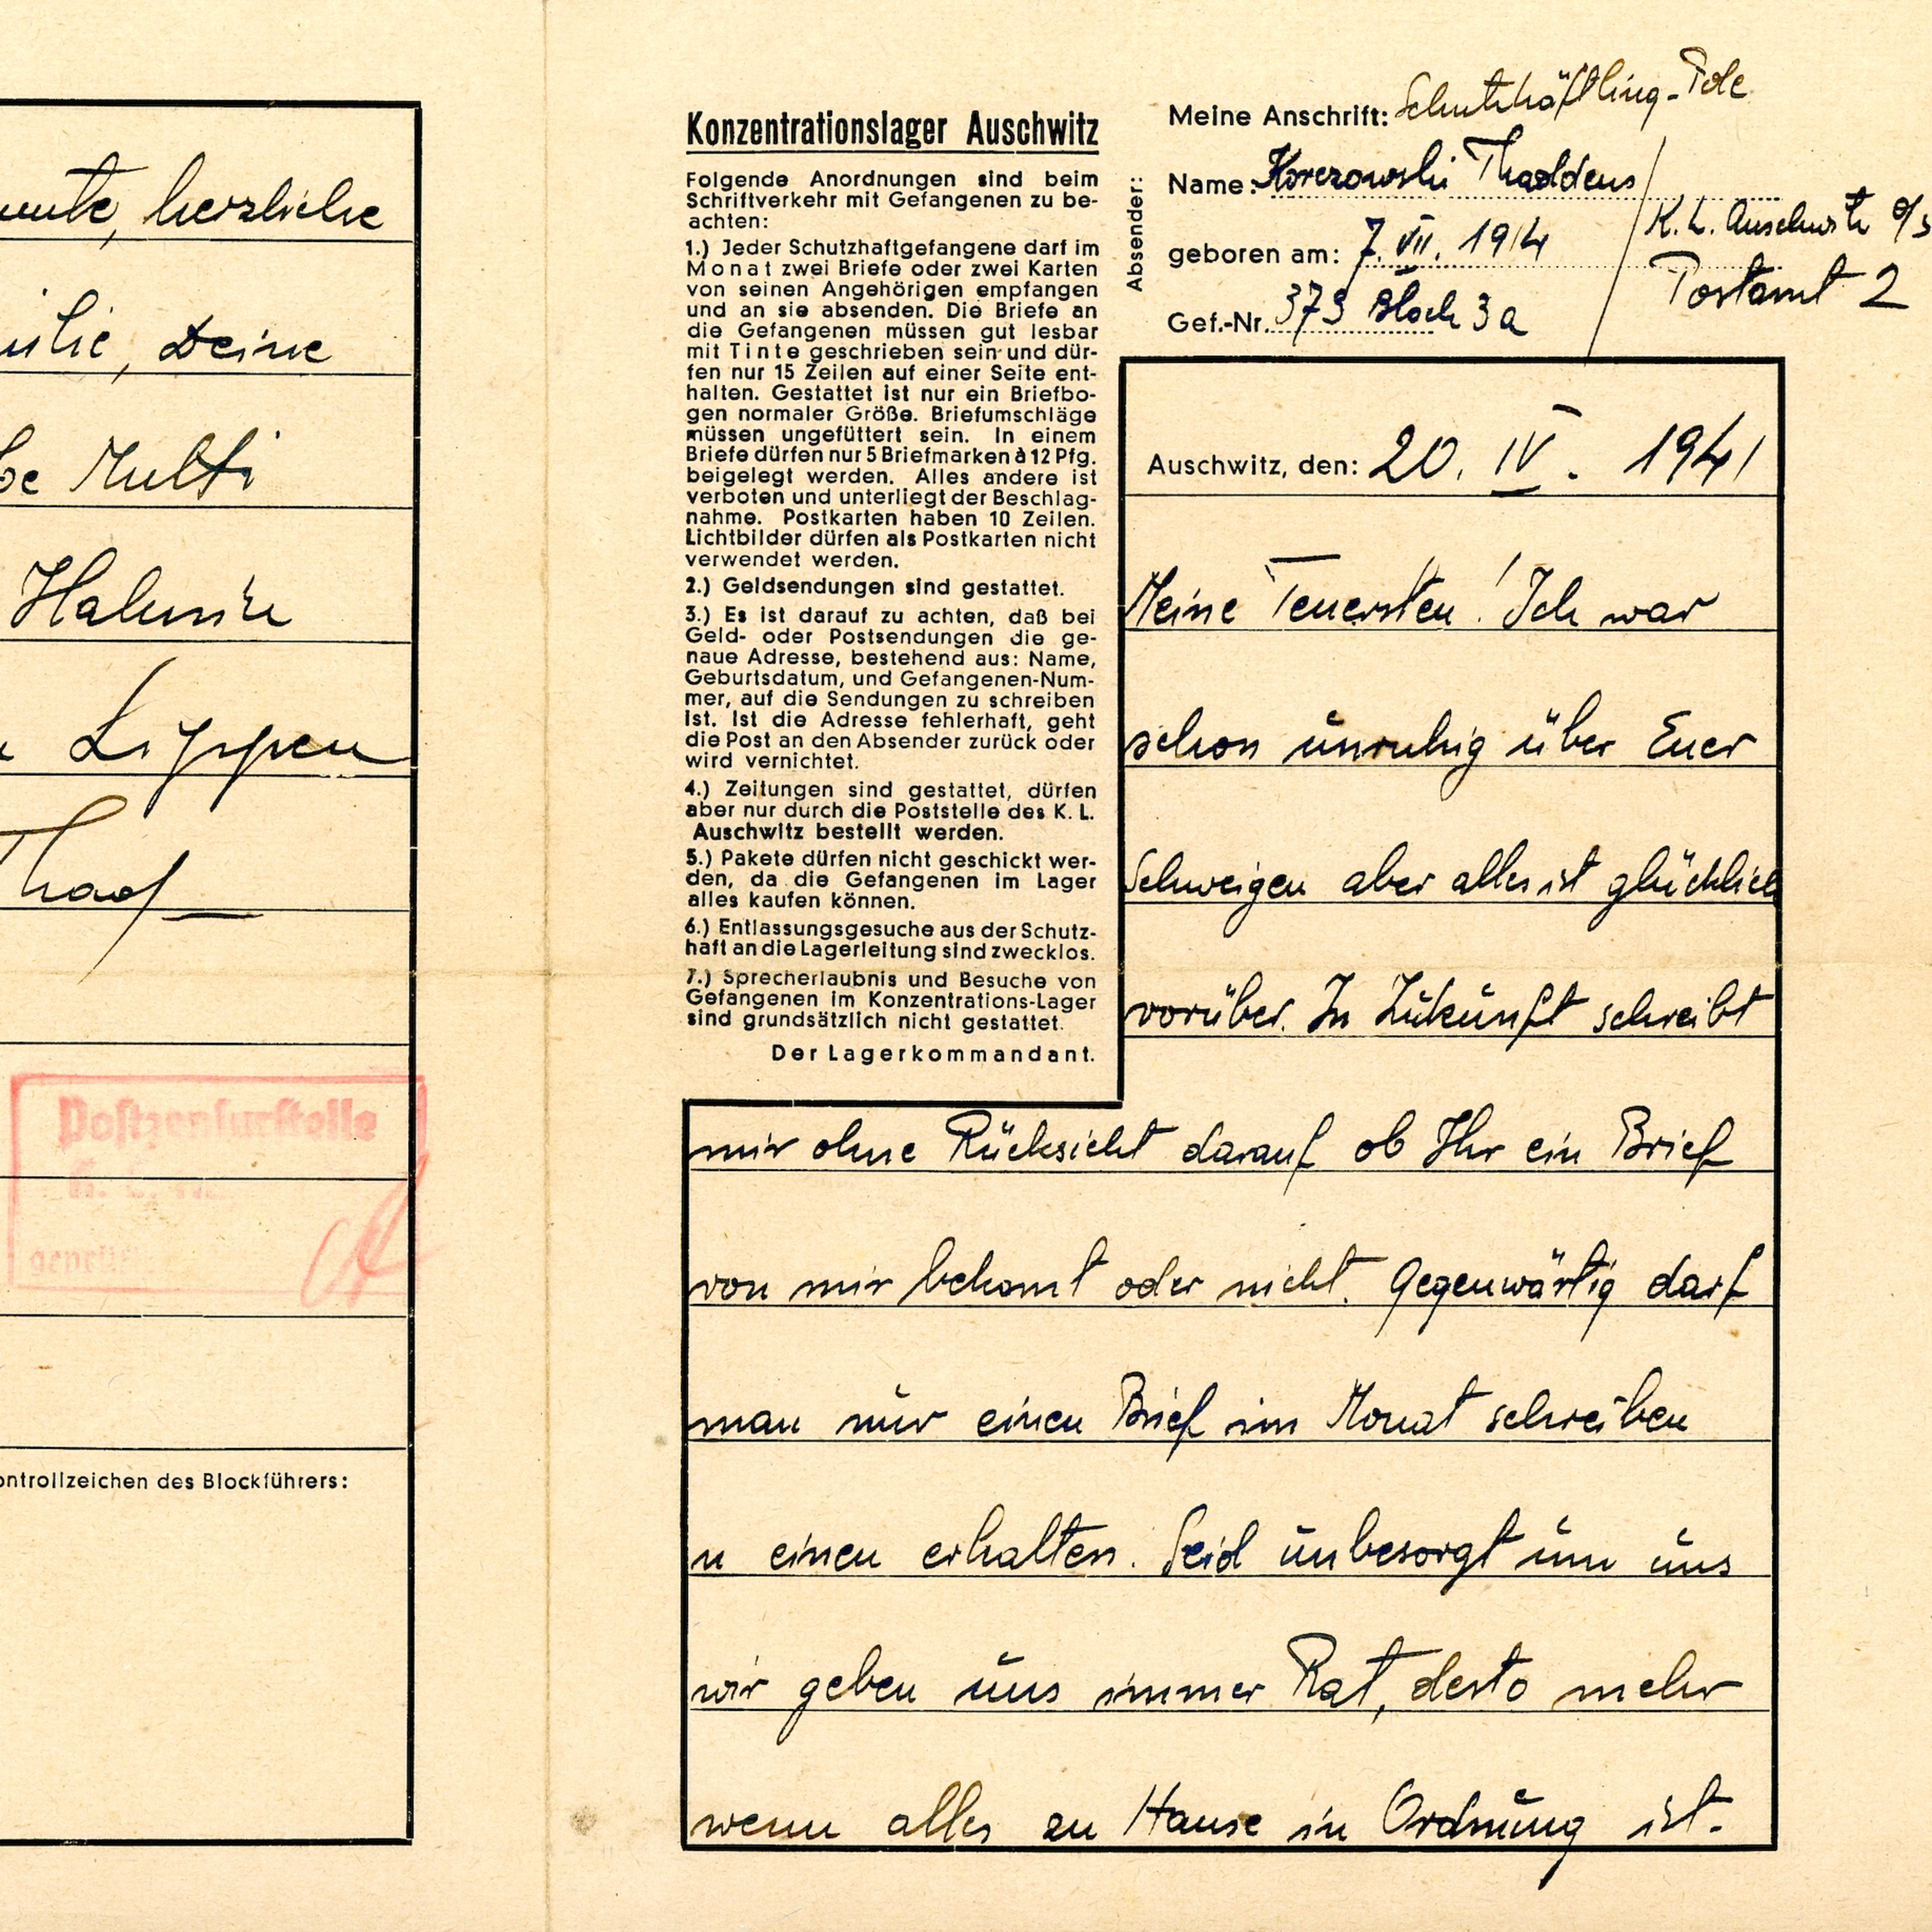 unte, herzliche
ilie, Deine
be Multi
Halusia
Lippen
Thad
Postzensurstelle
geprüft
Kontrollzeichen des Blockführers:
Konzentrationslager Auschwitz
Folgende Anordnungen sind beim
Schriftverkehr mit Gefangenen zu be-
achten:
1.) Jeder Schutzhaftgefangene darf im
Monat zwei Briefe oder zwei Karten
von seinen Angehörigen empfangen
und an sie absenden. Die Briefe an
die Gefangenen müssen gut lesbar
mit Tinte geschrieben sein und dür-
fen nur 15 Zeilen auf einer Seite ent-
halten. Gestattet ist nur ein Briefbo-
gen normaler Größe. Briefumschläge
müssen ungefüttert sein. In einem
Briefe dürfen nur 5 Briefmarken à 12 Pfg.
beigelegt werden. Alles andere ist
verboten und unterliegt der Beschlag-
nahme. Postkarten haben 10 Zeilen.
Lichtbilder dürfen als Postkarten nicht
verwendet werden.
2.) Geldsendungen sind gestattet.
3.) Es ist darauf zu achten, daß bei
Geld- oder Postsendungen die ge-
naue Adresse, bestehend aus: Name,
Geburtsdatum, und Gefangenen-Num-
mer, auf die Sendungen zu schreiben
ist. Ist die Adresse fehlerhaft, geht
die Post an den Absender zurück oder
wird vernichtet.
4.) Zeitungen sind gestattet, dürfen
aber nur durch die Poststelle des K. L.
Auschwitz bestellt werden.
5.) Pakete dürfen nicht geschickt wer-
den, da die Gefangenen im Lager
alles kaufen können.
6.) Entlassungsgesuche aus der Schutz-
haft an die Lagerleitung sind zwecklos.
7.) Sprecherlaubnis und Besuche von
Gefangenen im Konzentrations-Lager
sind grundsätzlich nicht gestattet.
Der Lagerkommandant.
Absender:
Meine Anschrift: Schutzhäftling-Pole
Name: Korczowski Thaddeus
geboren am: 7. VII. 1914
Gef.-Nr. 373 Block 3a
K. L. Auschwitz O/S
Postamt 2
Auschwitz, den: 20. IV. 1941
Meine Teuersten! Ich war
schon unruhig über Euer
Schweigen aber alles ist glücklich
vorüber. In Zukunft schreibt
mir ohne Rücksicht darauf ob Ihr ein Brief
von mir bekomt oder nicht. Gegenwärtig darf
man nur einen Brief im Monat schreiben
u einen erhalten. Seid unbesorgt um uns
wir geben uns immer Rat, desto mehr
wenn alles zu Hause in Ordnung ist.